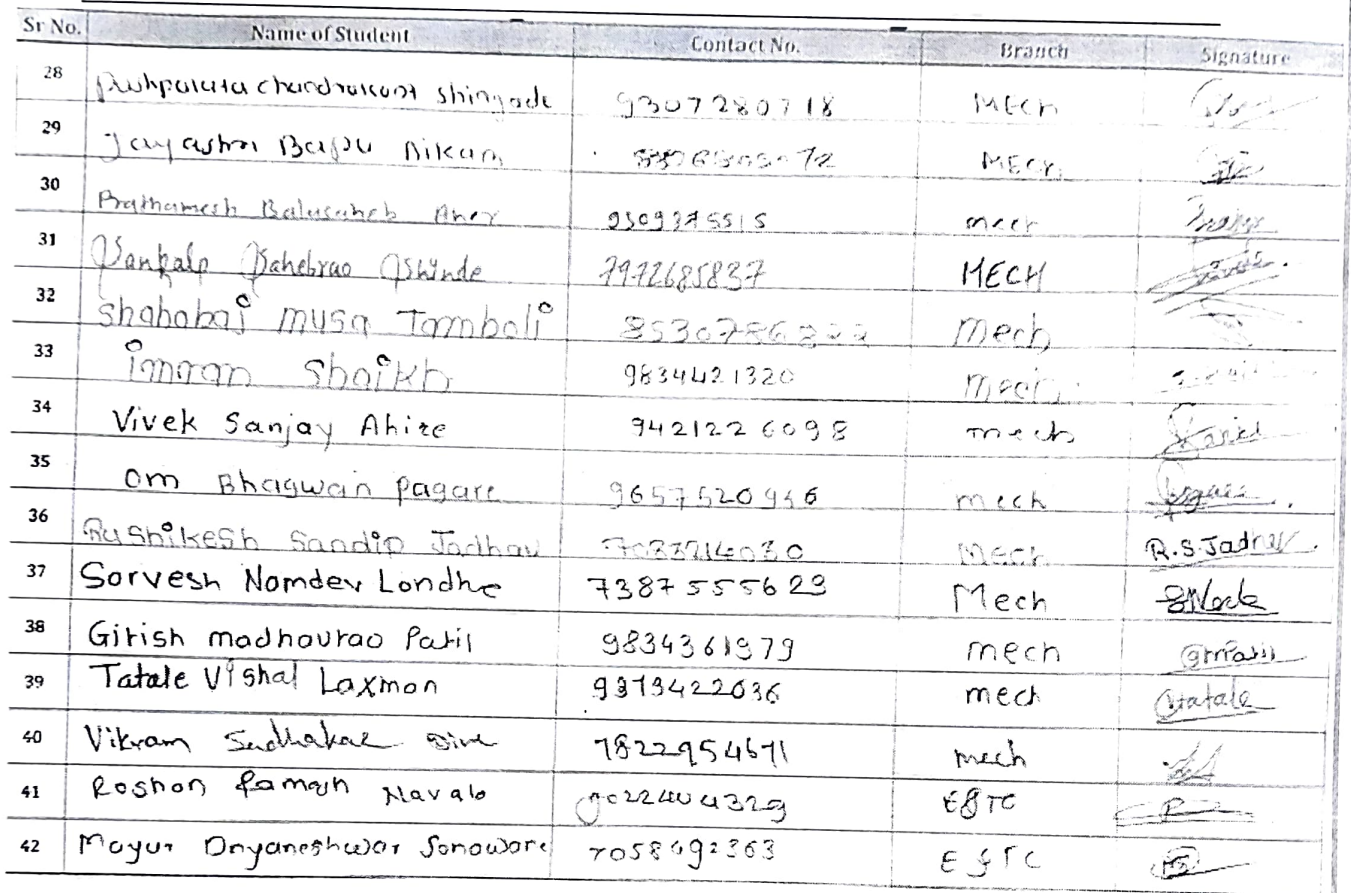 Sr No. Name of Student Contact No. Branch Signature
28 chandrakant Shingade 9307280718 MECH
29 Jayashri Bapu Nikam MECH
30 Prathamesh Balasaheb Aher 9309375515 mech
31 Sankalp Sahebrao Shinde 7972685837 MECH
32 Shababaj musa Tamboli Mech
33 imran Shaikh 9834421320 mech
34 Vivek Sanjay Ahire 9421226098 mech
35 Om Bhagwan pagare 9657520946 mech
36 Rushikesh Sandip Jadhav Mech R.S.Jadhav.
37 Sarvesh Namdev Londhe 7387555629 Mech
38 Girish madhavrao Patil 9834361979 mech gmpatil
39 Tatale Vishal Laxman mech vtatale
40 Vikram Sudhakar Dive 7822954671 mech
41 Roshan Ramesh Navale 9022404329 E&TC
42 Mayur Dnyaneshwar Sonaware 7058492363 E&TC